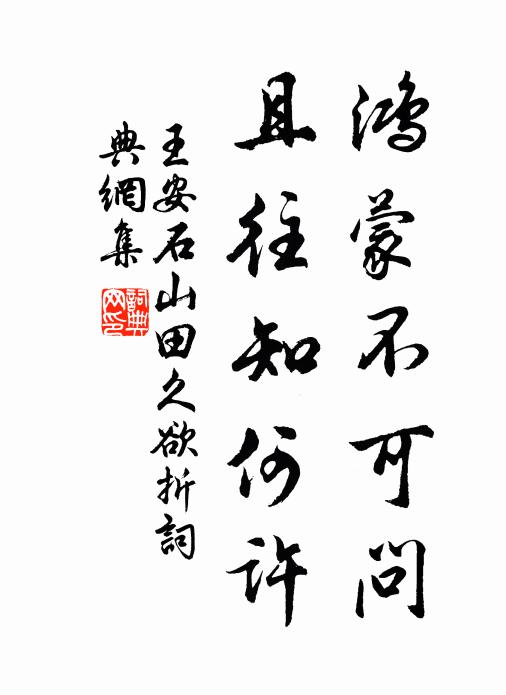 鸿蒙不可问
且往知何许
王安石山田久欲折詞
典網集
詞典网印